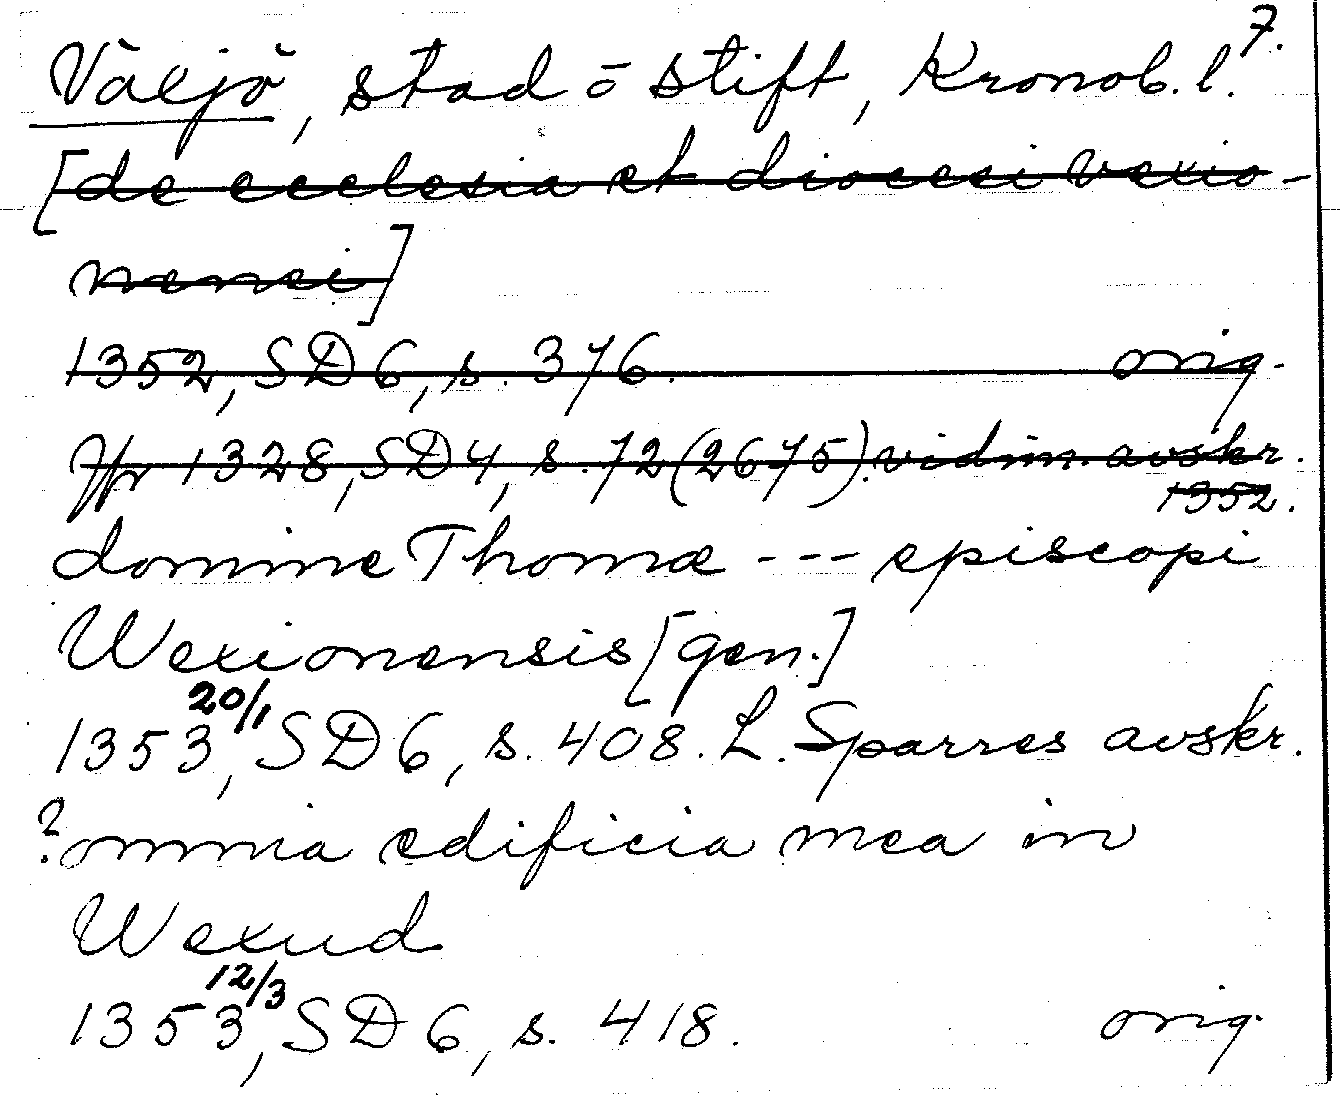 7.
Växjö, stad o stift, Kronob. l.
[de ecclesia et diocesi Vexio-
nensi]
1352, SD 6, s. 376. orig.
Jfr 1328, SD 4, s. 72 (2675). vidim. avskr.
1352.
domine Thome --- episcopi
Wexionensis [gen.]
1353 20/1, SD 6, s. 408. L. Sparres avskr.
? omnia edificia mea in
Wexud
1353 12/3, SD 6, s. 418. orig.